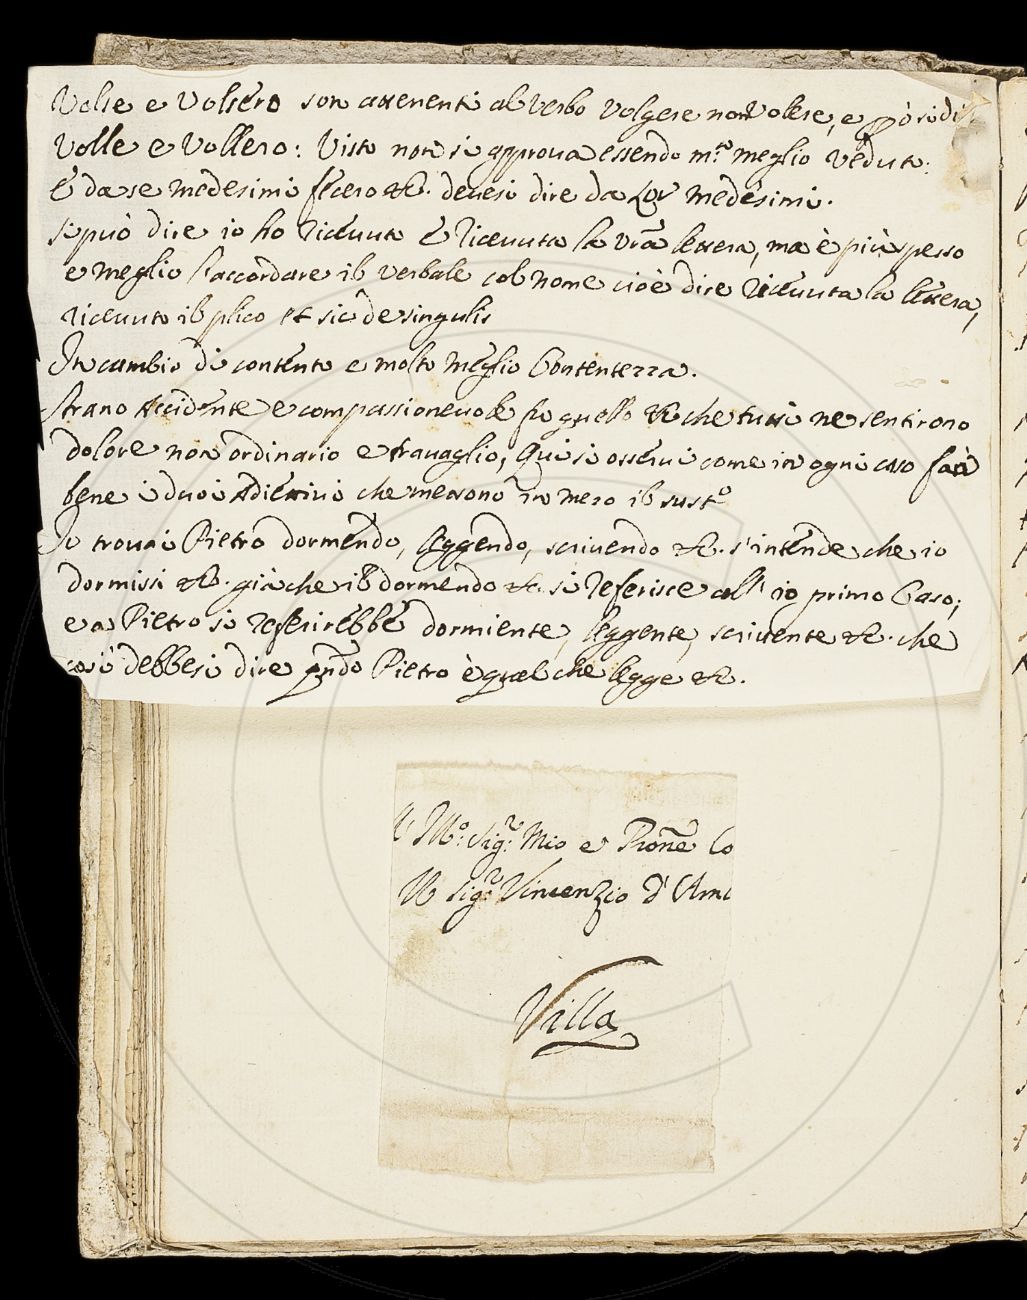 Volse e Volsero son attenenti al verbo volgere non volere, e però si di
Volle e Vollero: Visto non si approva essendo m.to meglio Veduto:
E da se medesimi fecero &. devesi dire da Lor medesimi.
Si può dire io ho ricevuto e ricevuta la vrã lettera, ma è più spesso
e meglio l'accordare il verbale col nome cioè dire ricevuta la lettera,
ricevuto il plico et sic de singulis
In cambio di contento e molto meglio Contentezza.
Strano Accidente e compassionevole fu quello & che tutti ne sentirono
dolore non ordinario e travaglio, Qui si osservi come in ogni caso farà
bene i duoi Adiettivi che mettono in mezo il sust.o
Io trovai Pietro dormendo, leggendo, scrivendo &. s'intende che io
dormissi &. già che il dormendo &. si referisce all' io primo Caso;
e a Pietro si referirebbe dormiente, leggente, scrivente &. che
così debbesi dire qndo Pietro è quel che legge &.
M.o: Sig.r: Mio e Pronẽ Co
Sig.r Vincenzio d' Am
Villa